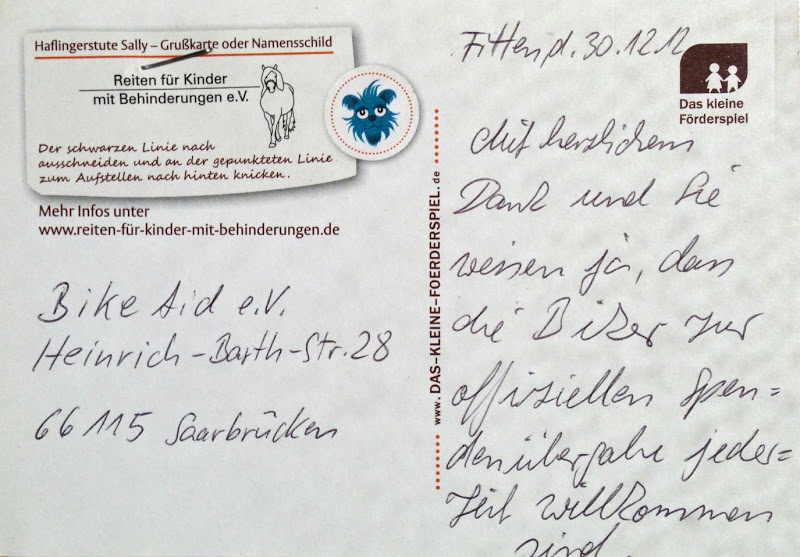 Haflingerstute Sally – Grußkarte oder Namensschild
Reiten für Kinder
mit Behinderungen e.V.
Der schwarzen Linie nach
ausschneiden und an der gepunkteten Linie
zum Aufstellen nach hinten knicken.
Mehr Infos unter
www.reiten-für-kinder-mit-behinderungen.de
Bike Aid e.V.
Heinrich-Barth-Str. 28
66115 Saarbrücken
www.DAS-KLEINE-FOERDERSPIEL.de
Das kleine
Förderspiel
Fitten, d. 30.12.12
Mit herzlichem
Dank und Sie
wissen ja, dass
die Biker zur
offiziellen Spen=
denübergabe jeder=
zeit willkommen
sind.